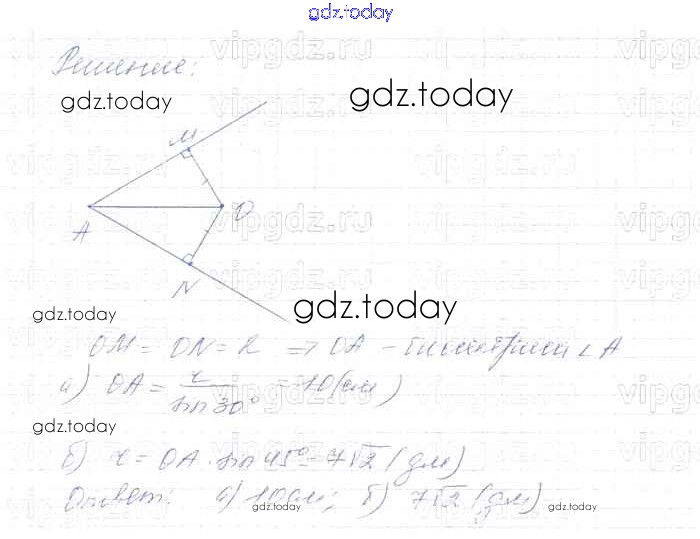 gdz.today
Решение:
vipgdz.ru
gdz.today gdz.today
M
A O
N
gdz.today gdz.today
OM = ON = R ⇒ OA – биссектриса ∠A
а) OA = r / sin 30° = 10 (см)
gdz.today
б) r = OA · sin 45° = 7√2 (дм)
Ответ: а) 10 см; б) 7√2 (дм)
gdz.today gdz.today